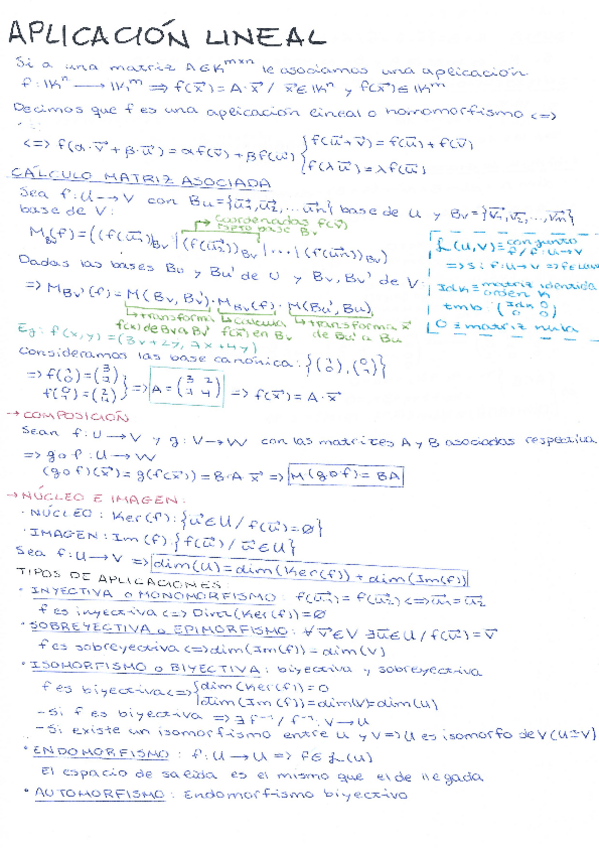 APLICACIÓN LINEAL
Si a una matriz A∈K^{m×n} le asociamos una aplicación
f: K^n → K^m ⇒ f(x⃗) = A·x⃗ / x⃗∈K^n y f(x⃗)∈K^m
Decimos que f es una aplicación lineal o homomorfismo <=>
<=> f(α·v⃗ + β·u⃗) = αf(v⃗) + βf(u⃗) { f(u⃗+v⃗) = f(u⃗) + f(v⃗)
f(λu⃗) = λf(u⃗)
CÁLCULO MATRIZ ASOCIADA
Sea f: U → V con Bu = {u⃗1, u⃗2, ... u⃗n} base de U y Bv = {v⃗1, v⃗2, ..., v⃗m}
base de V:
Coordenadas f(u⃗)
respecto base Bv
M_{Bv}(f) = ((f(u⃗1))_{Bv} | (f(u⃗2))_{Bv} | ... | (f(u⃗n))_{Bv})
L(U,V) ≡ conjunto
f / f: U → V
=> Si f: U → V => f∈L(U,V)
Idk ≡ matriz identidad
orden K
tmb (Idk 0
0 0)
0 ≡ matriz nula
Dadas las bases Bu y Bu' de U y Bv, Bv' de V:
=> M_{Bv'}(f) = M(Bv, Bv')· M_{Bv}(f) · M(Bu', Bu)
transforma f(x) de Bv a Bv'
calcula f(x⃗) en Bv
transforma x⃗ de Bu' a Bu
Eg: f(x,y) = (3x+2y, 7x+4y)
Consideramos las base canónica: {(1 0), (0 1)}
=> f(1 0) = (3 7)
f(0 1) = (2 4) } => A = (3 2
7 4) => f(x⃗) = A·x⃗
→ COMPOSICIÓN
Sean f: U → V y g: V → W con las matrices A y B asociadas respectiva.
=> g∘f: U → W
(g∘f)(x⃗) = g(f(x⃗)) = B·A x⃗ => M(g∘f) = BA
→ NÚCLEO E IMAGEN:
· NÚCLEO: Ker(f): {u⃗∈U / f(u⃗) = Ø}
· IMAGEN: Im(f) {f(u⃗) / u⃗∈U}
Sea f: U → V => dim(U) = dim(Ker(f)) + dim(Im(f))
TIPOS DE APLICACIONES:
· INYECTIVA O MONOMORFISMO: f(u⃗1) = f(u⃗2) <=> u⃗1 = u⃗2
f es inyectiva <=> Dim(Ker(f)) = Ø
· SOBREYECTIVA o EPIMORFISMO: ∀v⃗∈V ∃u⃗∈U / f(u⃗) = v⃗
f es sobreyectiva <=> dim(Im(f)) = dim(V)
· ISOMORFISMO o BIYECTIVA: biyectiva y sobreyectiva
f es biyectiva <=> { dim(Ker(f)) = 0
dim(Im(f)) = dim(V) = dim(U)
- Si f es biyectiva => ∃ f⁻¹ / f⁻¹: V → U
- Si existe un isomorfismo entre U y V => U es isomorfo de V (U≅V)
· ENDOMORFISMO: f: U → U => f∈L(U)
El espacio de salida es el mismo que el de llegada
· AUTOMORFISMO: Endomorfismo biyectivo